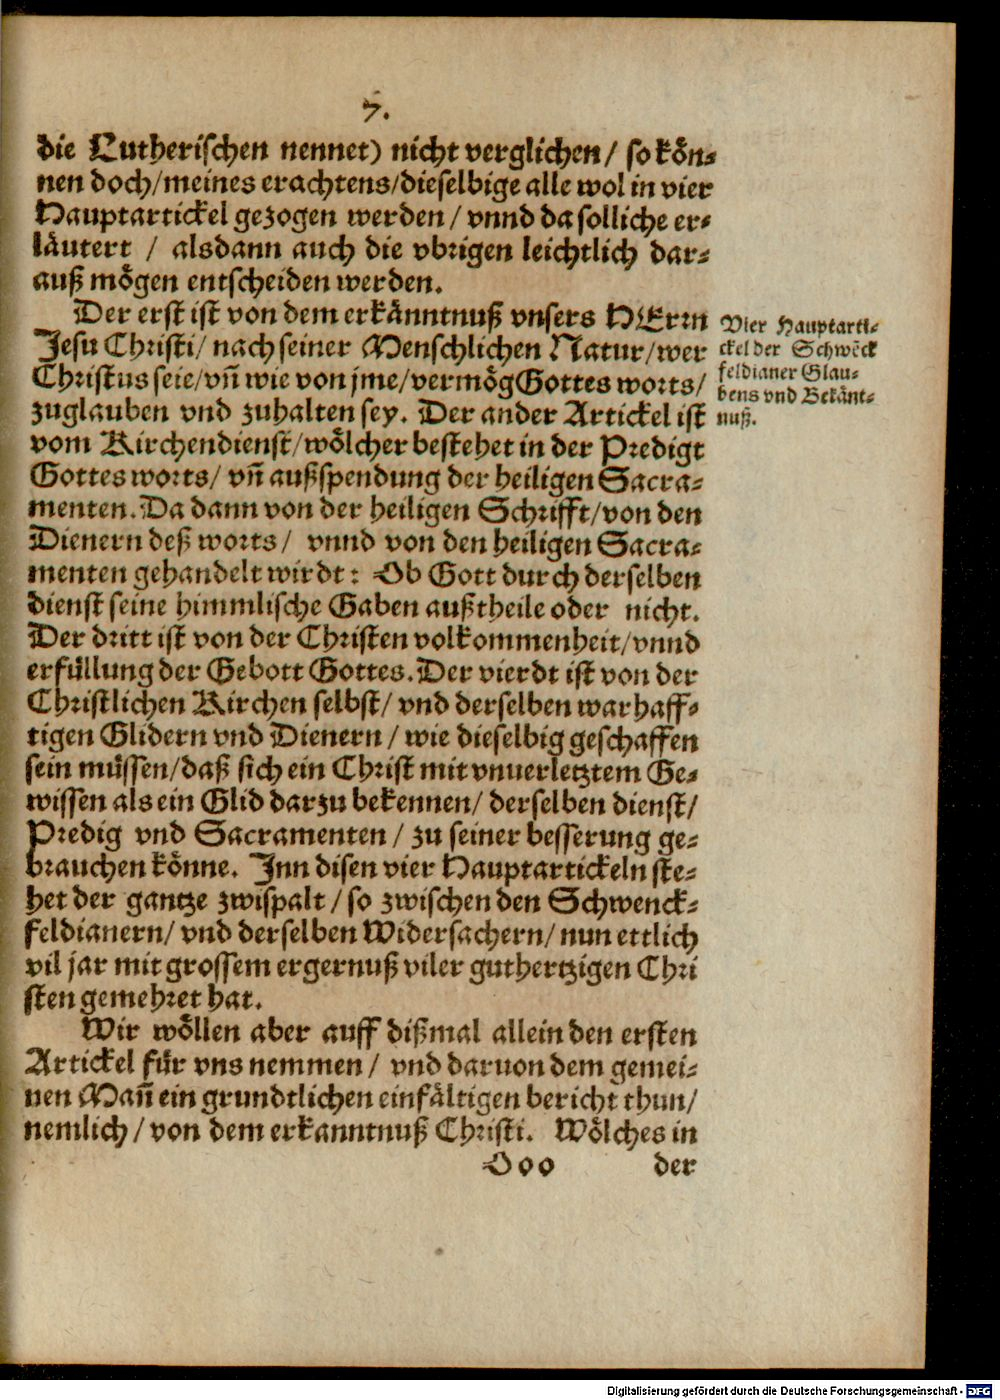 7.
die Lutherischen nennet) nicht verglichen/ so kön-
nen doch/meines erachtens/dieselbige alle wol in vier
Hauptartickel gezogen werden/ vnnd da solliche er-
läutert / alsdann auch die vbrigen leichtlich dar-
auß mögen entscheiden werden.
Der erst ist von dem erkänntnuß vnsers HErrn
Jesu Christi/ nach seiner Menschlichen Natur/wer
Christus seie/vñ wie von jme/vermög Gottes worts/
zuglauben vnd zuhalten sey. Der ander Artickel ist
vom Kirchendienst/wölcher bestehet in der Predigt
Gottes worts/ vñ außspendung der heiligen Sacra-
menten. Da dann von der heiligen Schrifft/von den
Dienern deß worts/ vnnd von den heiligen Sacra-
menten gehandelt wirdt: Ob Gott durch derselben
dienst seine himmlische Gaben außtheile oder nicht.
Der dritt ist von der Christen volkommenheit/vnnd
erfüllung der Gebott Gottes. Der vierdt ist von der
Christlichen Kirchen selbst/ vnd derselben warhaff-
tigen Glidern vnd Dienern/ wie dieselbig geschaffen
sein müssen/daß sich ein Christ mit vnuerletztem Ge-
wissen als ein Glid darzu bekennen/ derselben dienst/
Predig vnd Sacramenten/ zu seiner besserung ge-
brauchen könne. Inn disen vier Hauptartickeln ste-
het der gantze zwispalt/ so zwischen den Schwenck-
feldianern/ vnd derselben Widersachern/ nun ettlich
vil jar mit grossem ergernuß viler guthertzigen Chri
sten gemehret hat.
Wir wöllen aber auff dißmal allein den ersten
Artickel für vns nemmen/ vnd daruon dem gemei-
nen Mañ ein grundtlichen einfältigen bericht thun/
nemlich/ von dem erkanntnuß Christi. Wölches in
Ooo der
Vier Hauptarti-
ckel der Schwẽck
feldianer Glau-
bens vnd Bekänt-
nuß.
Digitalisierung gefördert durch die Deutsche Forschungsgemeinschaft - DFG